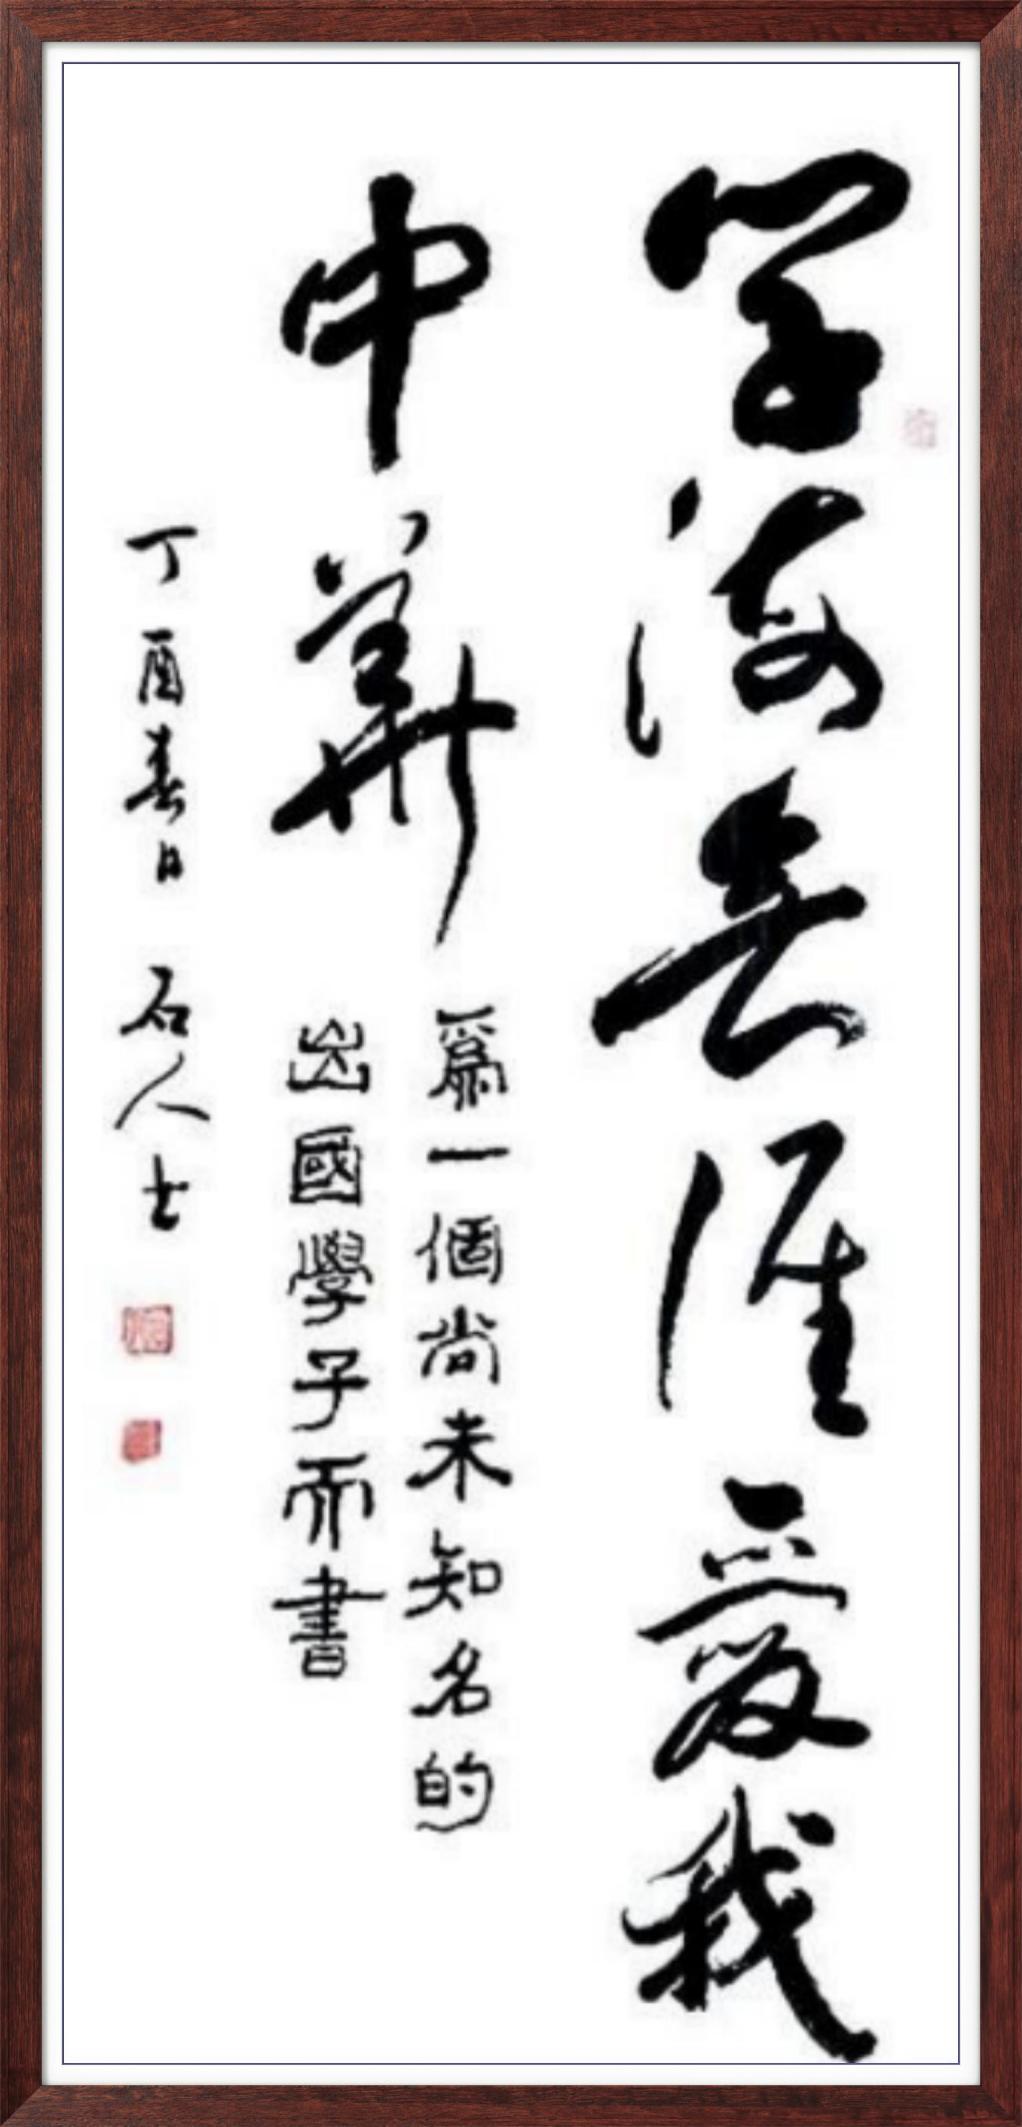 学海无涯爱我
中華
為一個尚未知名的
出國學子而書
丁酉春日 石人士